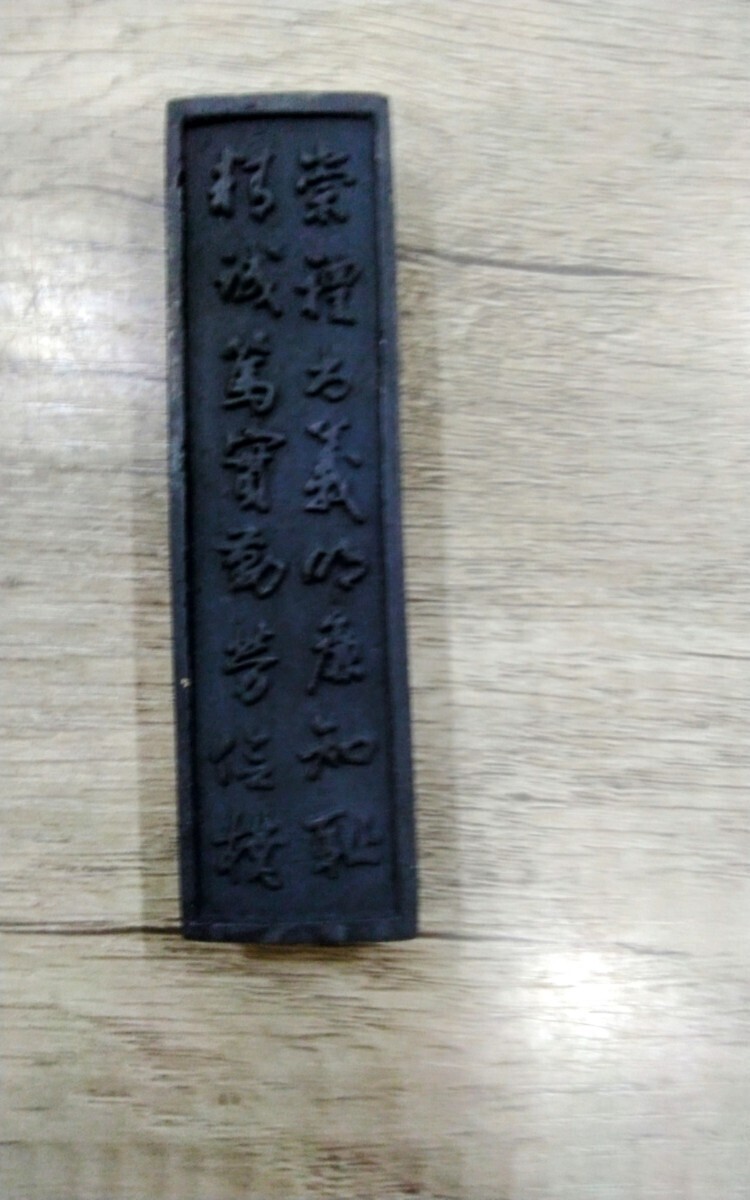 崇禮尚義明廉知恥
精誠篤實勤勞儉樸